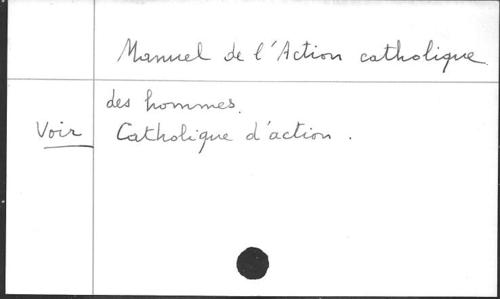 Manuel de l'Action catholique.
des hommes.
Voir Catholique d'action.